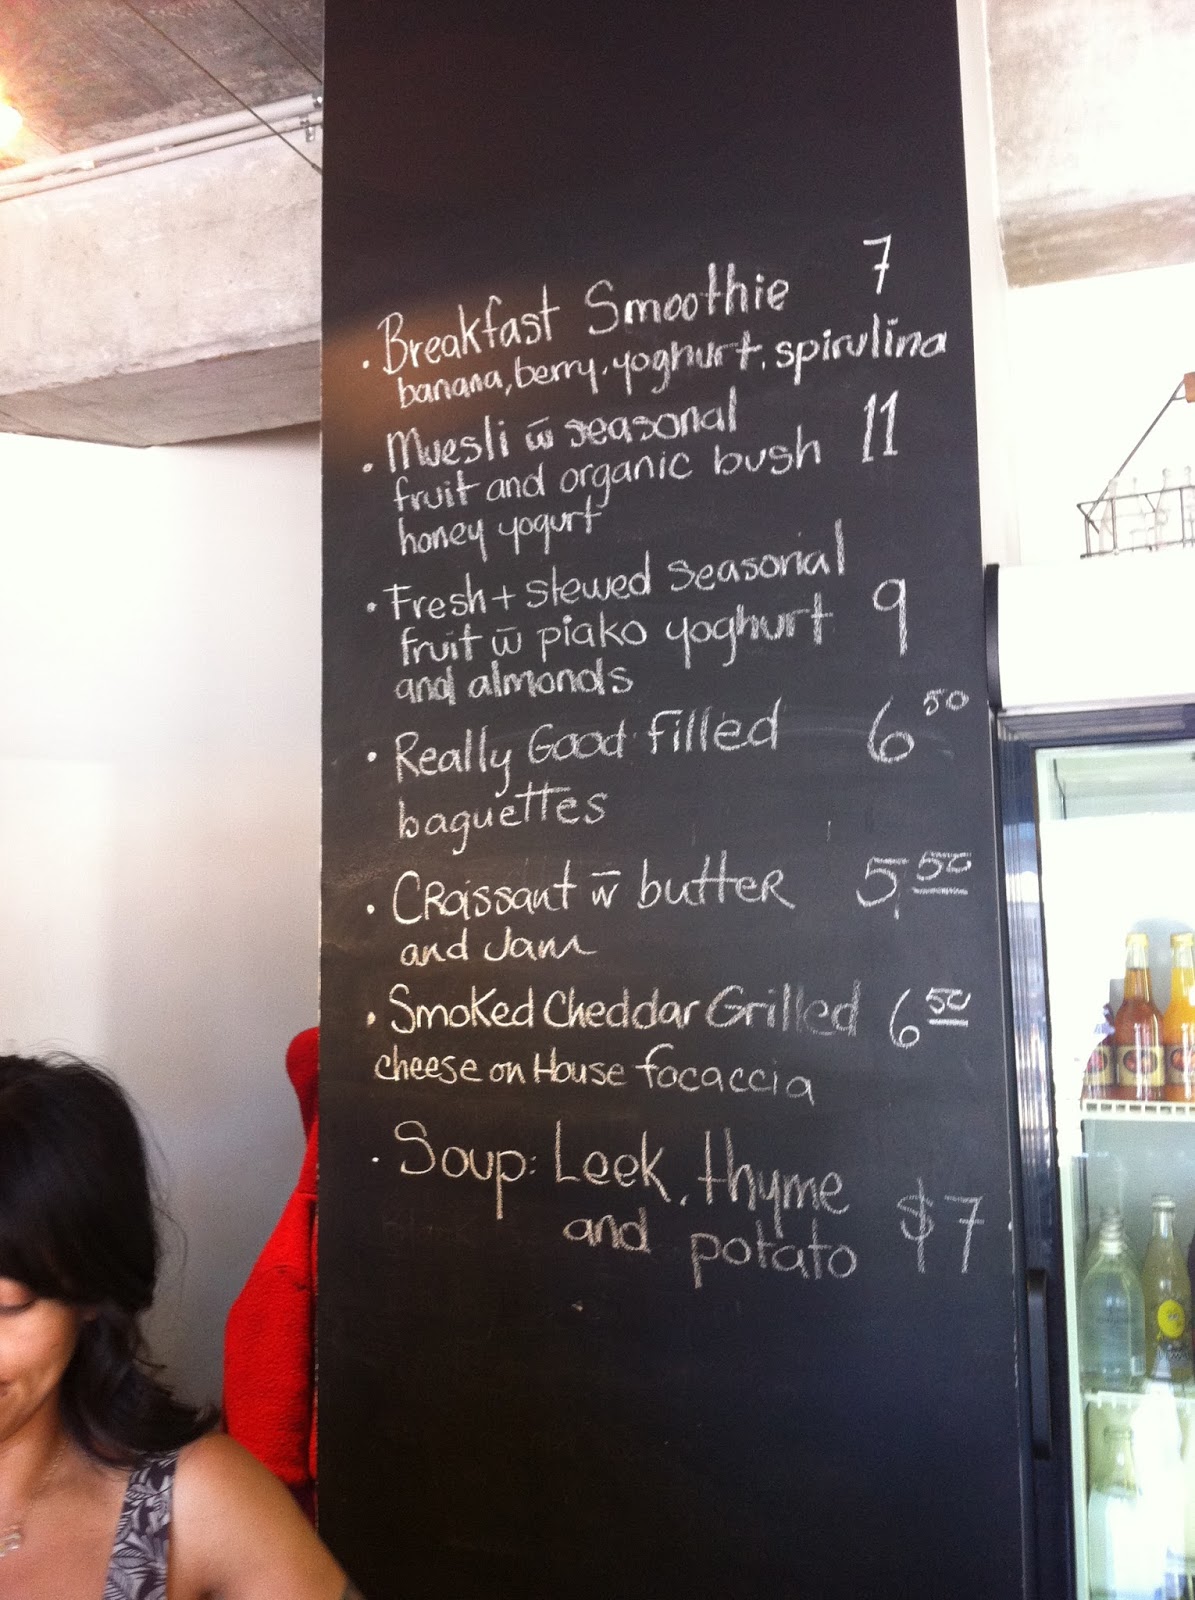 • Breakfast Smoothie 7
banana, berry, yoghurt, spirulina
• Muesli w̄ seasonal 11
fruit and organic bush
honey yogurt
• Fresh + stewed seasonal
fruit w̄ piako yoghurt 9
and almonds
• Really Good filled 6 50
baguettes
• Croissant w̄ butter 5,50
and Jam
• Smoked Cheddar Grilled 6 50
cheese on House focaccia
• Soup: Leek, thyme
and potato $7